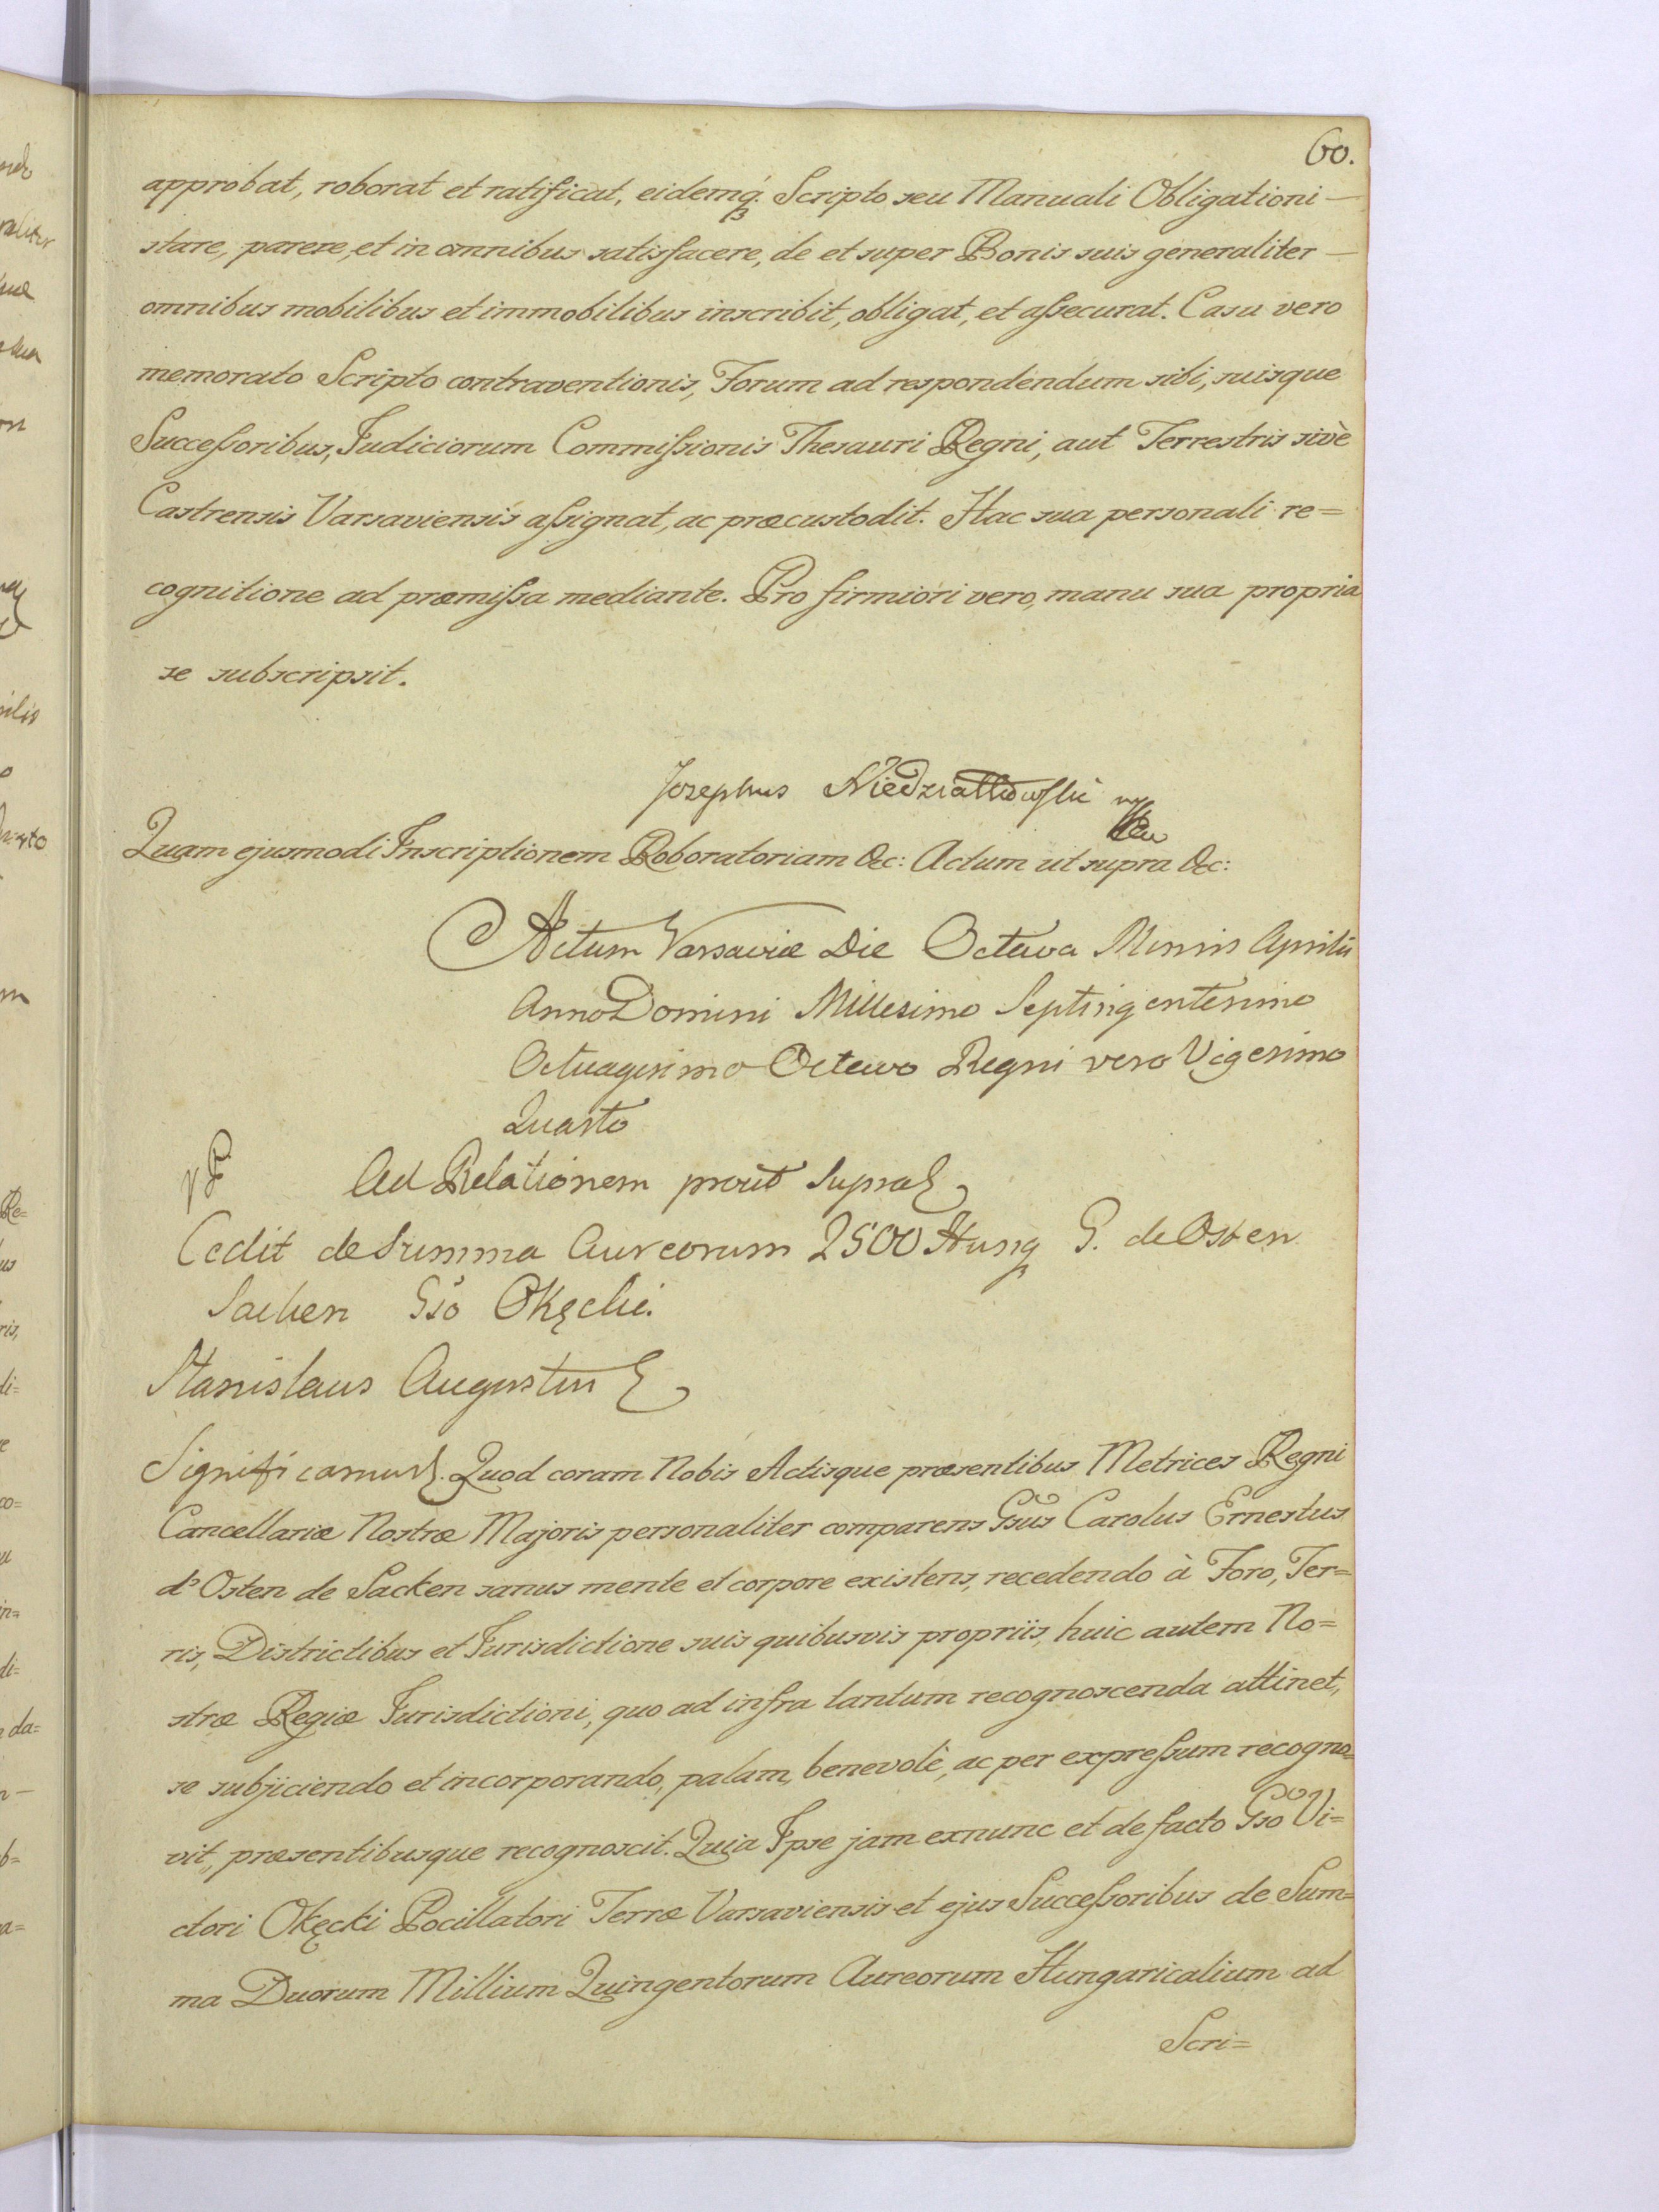 60.
approbat, roborat et ratificat, eidemq́. Scripto seu Manuali Obligationi —
stare, parere, et in omnibus satisfacere, de et super Bonis suis generaliter —
omnibus mobilibus et immobilibus inscribit, obligat, et aſsecurat. Casu vero
memorato Scripto contraventionis, Forum ad respondendum sibi, suisque
Succeſsoribus, Judiciorum Commiſsionis Thesauri Regni, aut Terrestris sivè
Castrensis Varsaviensis aſsignat, ac præcustodit. Hac sua personali re=
cognitione ad præmiſsa mediante. Pro firmiori vero, manu sua propria
se subscripsit.
Josephus Niedziałkowski
Quam ejusmodi Inscriptionem Roboratoriam &c: Actum ut supra &c:
Actum Varsaviæ Die Octava Mensis Aprilis
Anno Domini Millesimo Septingentesimo
Octuagesimo Octavo Regni vero Vigesimo
Quarto
Ad Relationem prout supra
Cedit de Summa Aureorum 2500 Hung G. de Osten
Sacken Gso Okęcki.
Stanislaus Augustus
Significamus. Quod coram Nobis Actisque præsentibus Metrices Regni
Cancellariæ Nostræ Majoris personaliter comparens Gsus Carolus Ernestus
d'Osten de Sacken sanus mente et corpore existens, recedendo à Foro, Ter=
ris, Districtibus et Jurisdictione suis quibusvis propriis, huic autem No=
stræ Regiæ Jurisdictioni, quo ad infra tantum recognoscenda attinet,
se subjiciendo et incorporando, palam, benevolè, ac per expreſsum recogno=
vit, præsentibusque recognoscit. Quia Ipse jam exnunc et de facto Gso Vi=
ctori Okęcki Pocillatori Terræ Varsaviensis et ejus Succeſsoribus de Sum=
ma Duorum Millium Quingentorum Aureorum Hungaricalium ad
Scri=